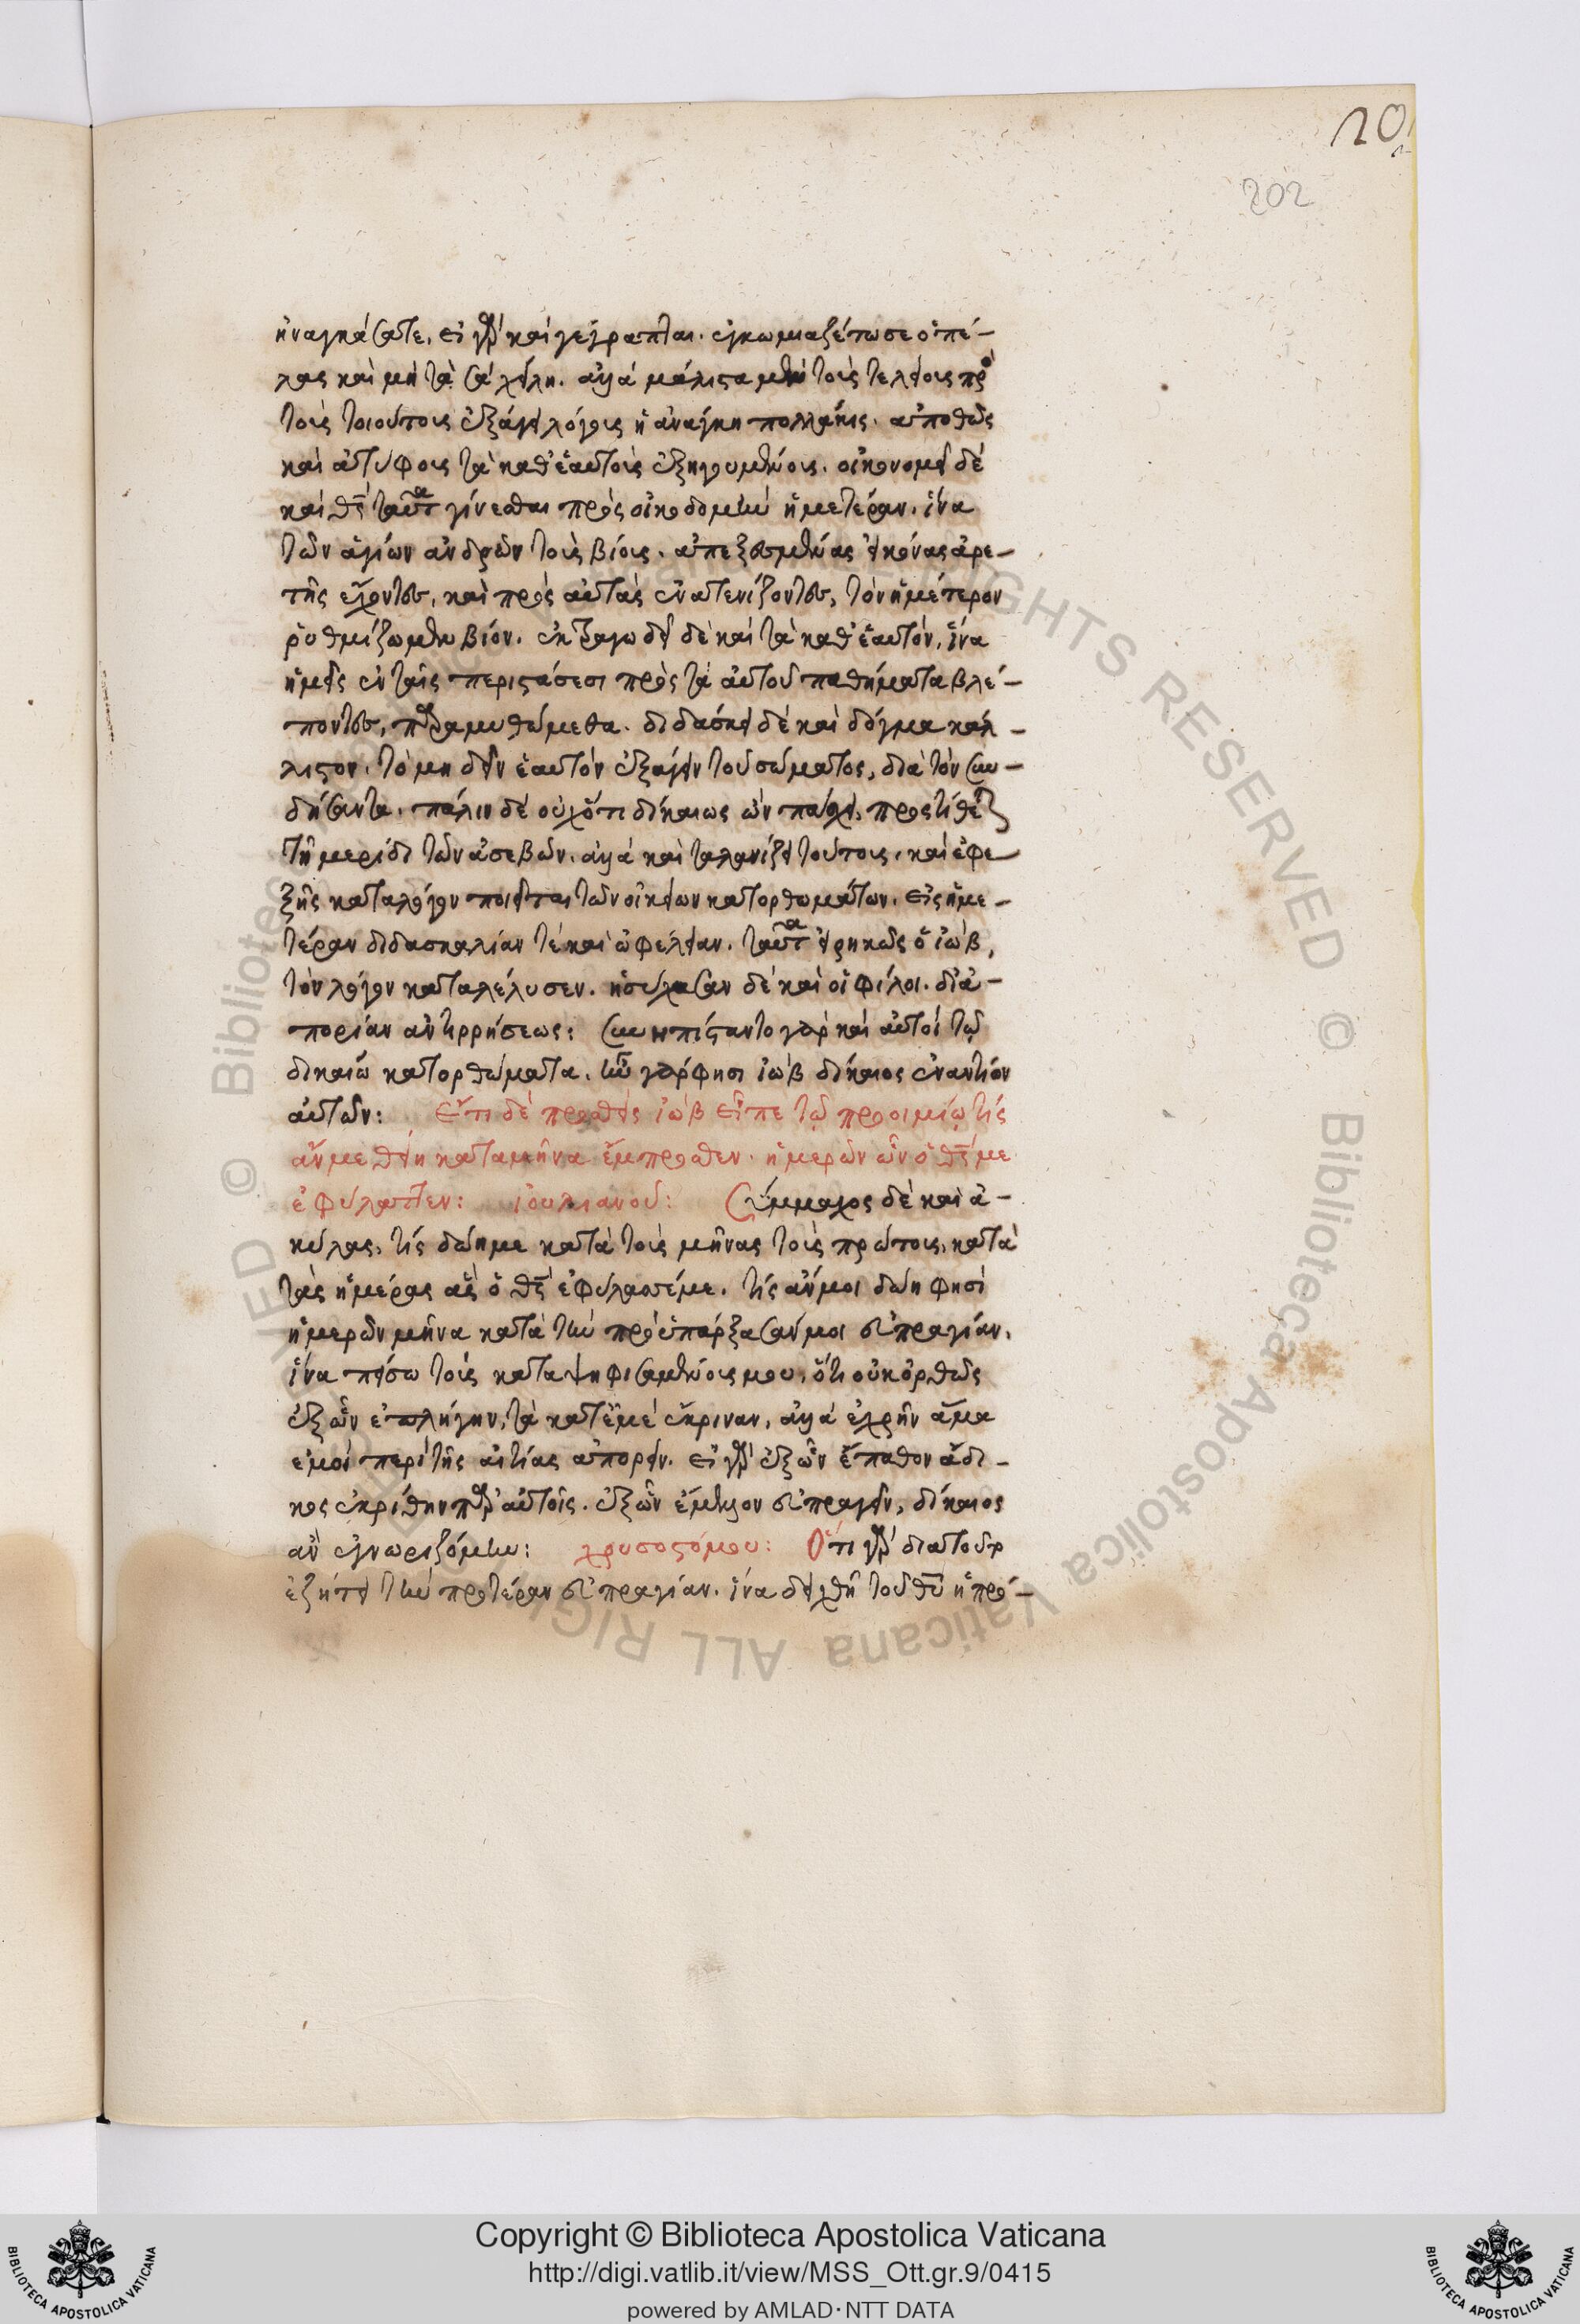 20
202
ἠναγκάσατε. εἰ γὰρ καὶ γέγραπται. ἐγκωμιαζέτω σε ὁ πέ-
λας καὶ μὴ τὰ σὰ χείλη. ἀλλὰ μάλιστα μὲν τοὺς τελείους πρὸ
τοὺς τοιούτους ἐξάγει λόγους ἡ ἀνάγκη πολλάκις. ἀπαθῶς
καὶ ἀτύφοις τὰ καθ' ἑαυτοὺς ἐξηγουμένους. οἰκονομεῖ δὲ
καὶ θς ταῦτα γίνεσθαι πρὸς οἰκοδομὴν ἡμετέραν. ἵνα
τῶν ἁγίων ἀνδρῶν τοὺς βίους. ἀπεξεσμένας εἰκόνας ἀρε-
τῆς ἔχοντες, καὶ πρὸς αὐτὰς ἐνατενίζοντες, τὸν ἡμέτερον
ῥυθμίζωμεν βίον. ἐκτραγωδεῖ δὲ καὶ τὰ καθ' ἑαυτόν, ἵνα
ἡμεῖς ἐν ταῖς περιστάσεσι πρὸς τὰ αὐτοῦ παθήματα βλέ-
ποντες, παραμυθώμεθα. διδάσκει δὲ καὶ δόγμα κάλ-
λιστον. τὸ μὴ δεῖν ἑαυτὸν ἐξάγειν τοῦ σώματος, διὰ τὸν συν-
δήσαντα. πάλιν δὲ οὐχ ὅτι δίκαιως ὢν πάσχει, προστίθεται
τῇ μερίδι τῶν ἀσεβῶν. ἀλλὰ καὶ ταλανίζει τούτους, καὶ ἐφε
ξῆς κατάλογον ποιεῖται τῶν οἰκείων κατορθωμάτων. εἰς ἡμε-
τέραν διδασκαλίαν τὲ καὶ ὠφέλειαν. ταῦτα εἰρηκὼς ὁ ἰὼβ,
τὸν λόγον καταλέλυσεν. ἡσύχασαν δὲ καὶ οἱ φίλοι. δι' ἀ-
πορίαν ἀντιρρήσεως: συνηπίσταντο γὰρ καὶ αὐτοὶ τῷ
δικαίῳ κατορθώματα. ἦν γάρ φησι ἰὼβ δίκαιος ἐναντίον
αὐτῶν: Ἔτι δὲ προσθεὶς ἰὼβ εἶπε τῷ προοιμίῳ τίς
ἄν με θείη κατὰ μῆνα ἔμπροσθεν. ἡμερῶν ὧν ὁ θς με
ἐφύλαττεν: ἰουλιανοῦ: Σύμμαχος δὲ καὶ ἀ-
κύλας. τίς δώη με κατὰ τοὺς μῆνας τοὺς πρώτους, κατὰ
τὰς ἡμέρας ἃς ὁ θς ἐφύλασσέ με. τίς ἄν μοι δώη φησὶ
ἡμερῶν μῆνα κατὰ τὴν προϋπάρξασάν μοι εὐπραγίαν,
ἵνα πείσω τοὺς καταψηφισαμένους μου, ὅτι οὐκ ὀρθῶς
ἐξ ὧν ἐπλήγην, τὰ κατ' ἐμὲ ἔκριναν, ἀλλὰ ἐχρῆν ἅμα
ἐμοὶ περὶ τῆς αἰτίας ἀπορεῖν. εἰ γὰρ ἐξ ὧν ἔπαθον ἄδι-
κος ἐκρίθην παρ' αὐτοῖς. ἐξ ὧν ἔμελλον εὐπραγεῖν, δίκαιος
ἂν ἐγνωριζόμην: χρυσοστόμου: Ὅτι γὰρ διατοῦτο
ἐζήτει τὴν προτέραν εὐπραγίαν. ἵνα δειχθῇ τοῦ θυ ἡ πρό-
Copyright © Biblioteca Apostolica Vaticana
http://digi.vatlib.it/view/MSS_Ott.gr.9/0415
powered by AMLAD·NTT DATA